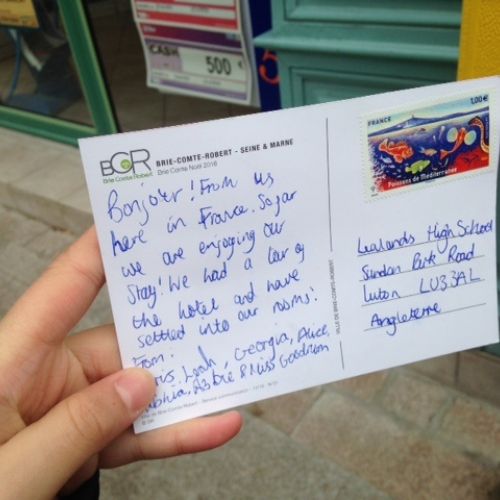 CASH
500
BCR
Brie Comte Robert
BRIE-COMTE-ROBERT - SEINE & MARNE
Brie Comte Noël 2016
Bonjour! From us
here in France. So far
we are enjoying our
Stay! We had a
the hotel and have
settled into our rooms!
From:
Leah, Georgia, Alice,
& Miss Goodman
FRANCE
1,00€
Poissons de Méditerranée
VILLE DE BRIE-COMTE-ROBERT
Lealands High School
Sundon Park Road
Luton LU3 3AL
Angleterre